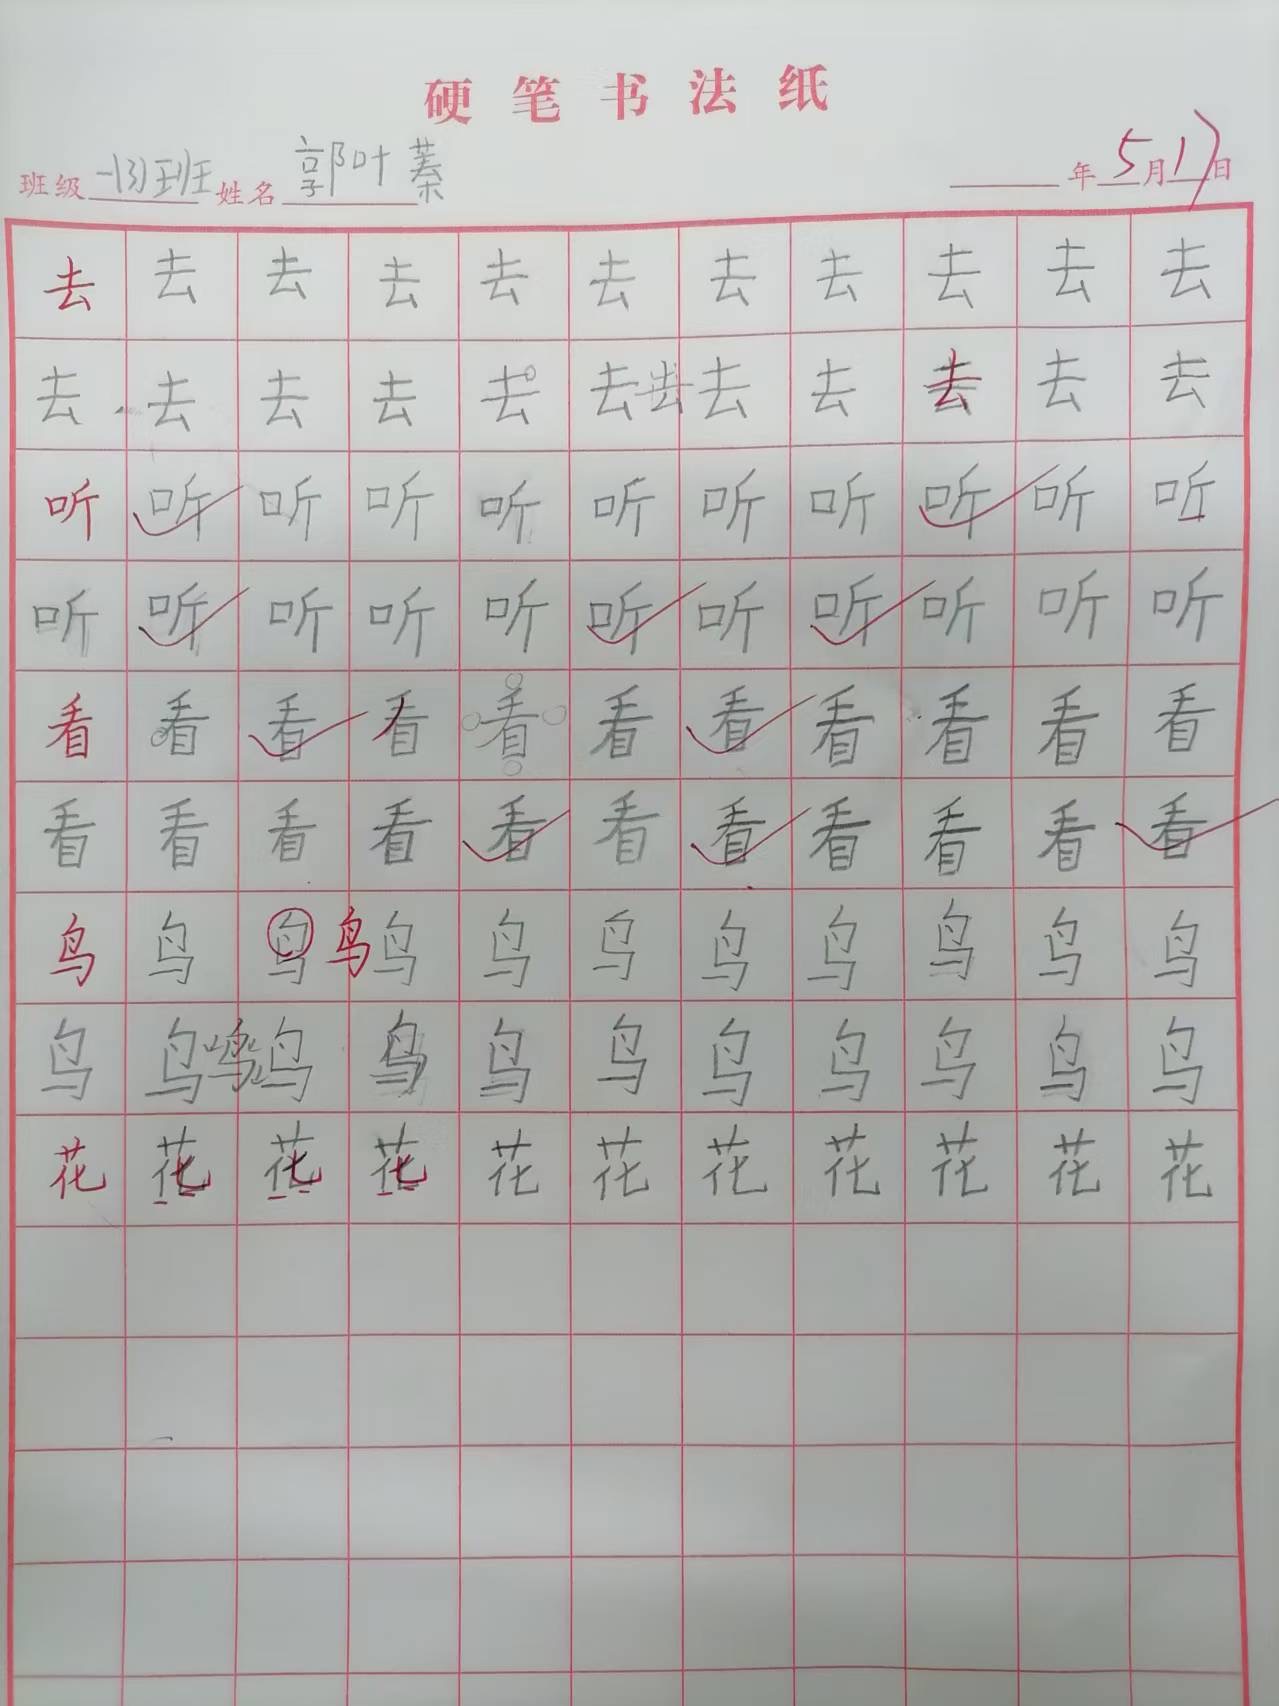 硬笔书法纸
班级 一(3)班 姓名 郭叶蓁 年 5 月 17 日
去 去 去 去 去 去 去 去 去 去 去
去 去 去 去 去 去 去 去 去 去 去 去
听 听 听 听 听 听 听 听 听 听 听
听 听 听 听 听 听 听 听 听 听 听
看 看 看 看 看 看 看 看 看 看 看
看 看 看 看 看 看 看 看 看 看 看
鸟 鸟 鸟 鸟 鸟 鸟 鸟 鸟 鸟 鸟 鸟 鸟
鸟 鸟 鸣 鸟 鸟 鸟 鸟 鸟 鸟 鸟 鸟 鸟
花 花 花 花 花 花 花 花 花 花 花